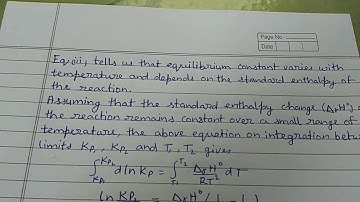 Page No.
Date
Eq(iii) tells us that equilibrium constant varies with
temperature and depends on the standard enthalpy of
the reaction.
Assuming that the standard enthalpy change (ΔrH°) of
the reaction remains constant over a small range of
temperature, the above equation on integration betw
limits KP1, KP2 and T1, T2 gives
∫KP1^KP2 d ln KP = ∫T1^T2 ΔrH°/RT² dT
ln KP2 = ΔrH° (1 - 1